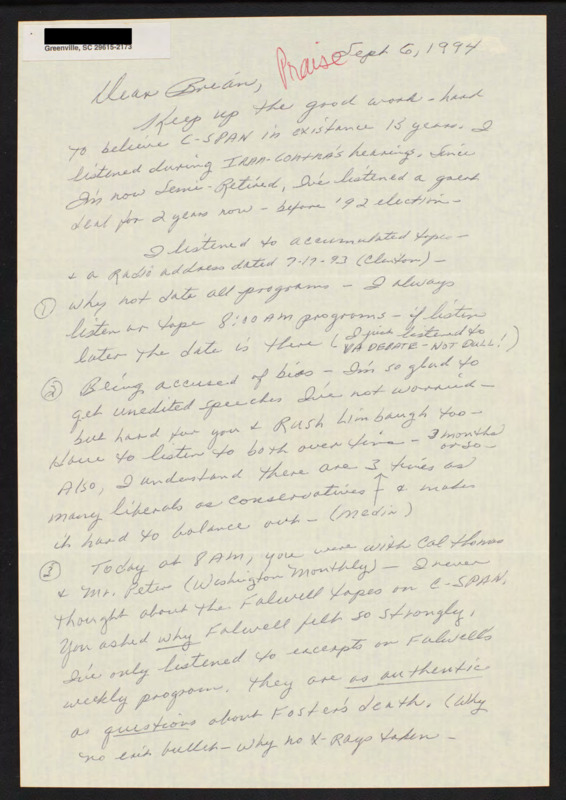 Greenville, SC 29615-2173
Praise
Sept 6, 1994
Dear Brian,
Keep up the good work - hard
to believe C-SPAN in existance 15 years. I
listened during IRAN-CONTRA's hearing. Since
I'm now Semi-Retired, I've listened a great
deal for 2 years now - before '92 election -
I listened to accumulated tapes -
& a Radio address dated 7-17-93 (Clinton) -
① Why not date all programs - I always
listen or tape 8:00 AM programs - if listen
later the date is there (I just listened to
VA DEBATE - NOT DULL!)
② Being accused of bias - I'm so glad to
get unedited speeches I've not worried -
but hard for you & Rush Limbaugh too -
Have to listen to both over time - 3 months
or so -
Also, I understand there are 3 times as
many liberals as conservatives ↑ & makes
it hard to balance out - (media)
③ Today at 8 AM, you were with Cal Thomas
& Mr. Peters (Washington Monthly) - I never
thought about the Falwell tapes on C-SPAN.
You asked why Falwell felt so strongly.
I've only listened to excerpts on Falwell's
weekly program. They are as authentic
as questions about Foster's death. (Why
no exit bullet - why no X-Rays taken -